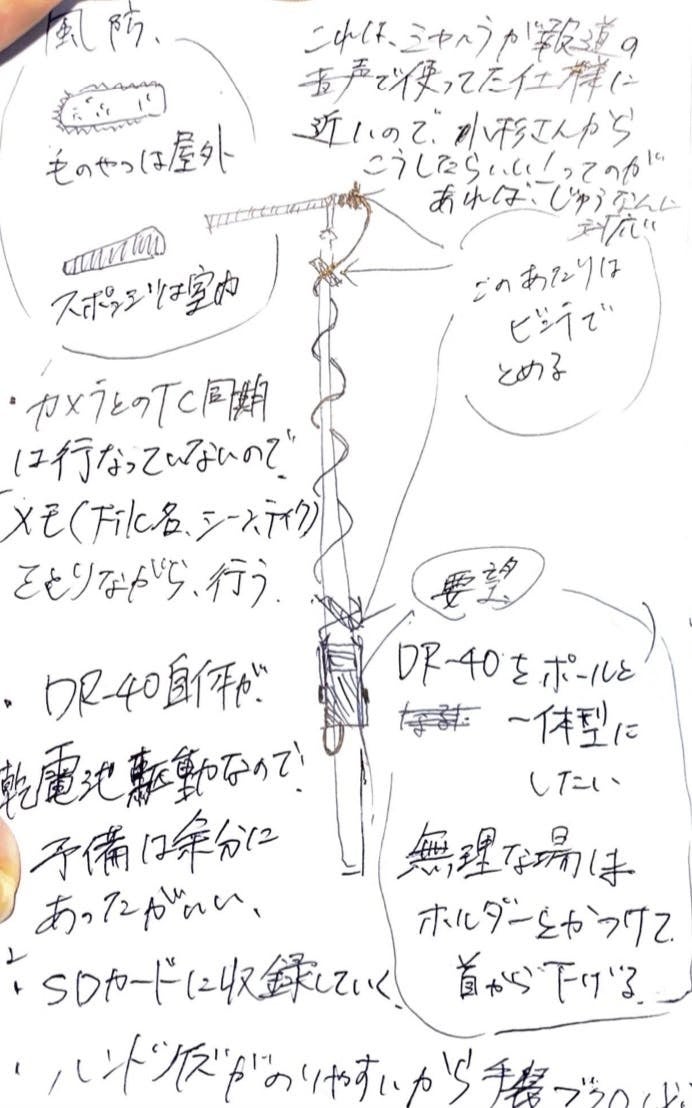 風防、
毛のやつは屋外
スポンジは室内
これは、ミヤハラが報道の
音声で使ってた仕様に
近いので、小杉さんから
こうしたらいい!ってのが
あれば、じゅうなんに
対応
このあたりは
ビニテで
とめる
・カメラとのTC同期
は行なっていないので、
メモ(ファイル名、シーン、テイク)
をとりながら、行う。
・DR-40自体が、
乾電池駆動なので、
予備は余分に
あったがいい、
・SDカードに収録していく
・ハンドノイズがのりやすいから
要望
DR-40をポールと
一体型に
したい
無理な場合は
ホルダーをかつけて
首から下げる